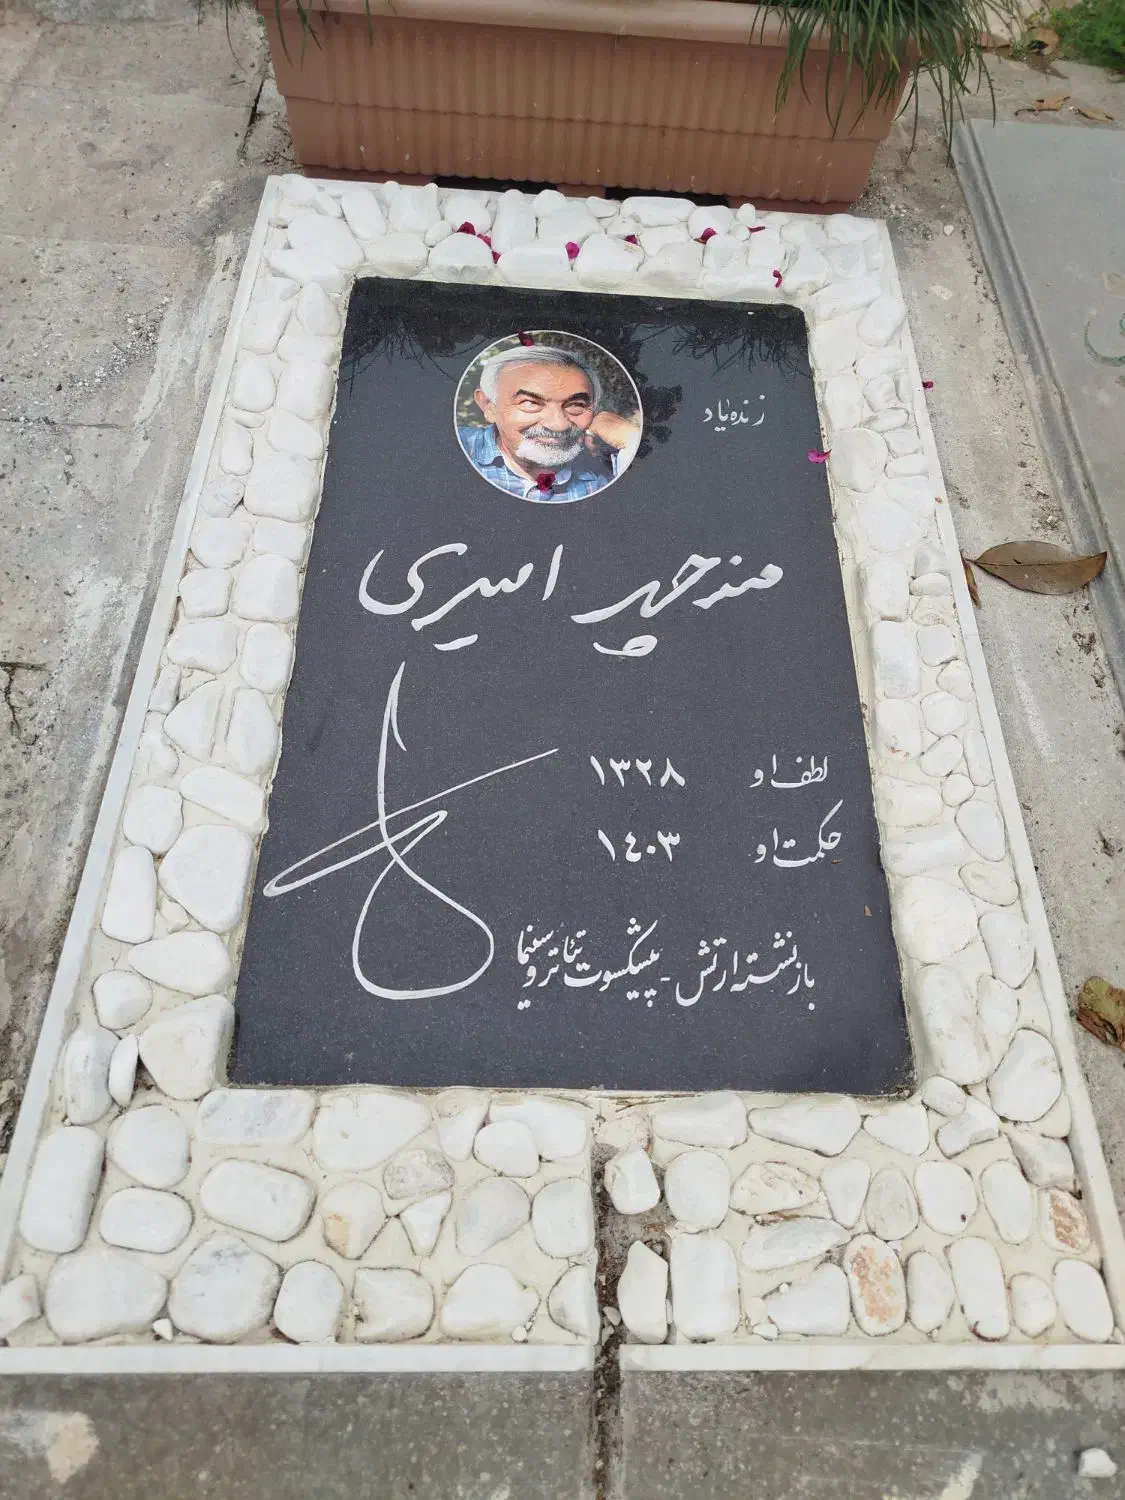 زنده یاد
منوچهر امیری
لطف او ۱۳۲۸
حکمت او ۱۴۰۳
بازنشسته ارتش - پیشکسوت تئاتر و سینما